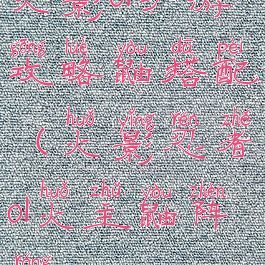 gōng lüè yòu dā pèi
攻略鼬搭配
huǒ yǐng rěn zhě
(火影忍者
huǒ zhǔ yòu zhèn
ol火主鼬阵